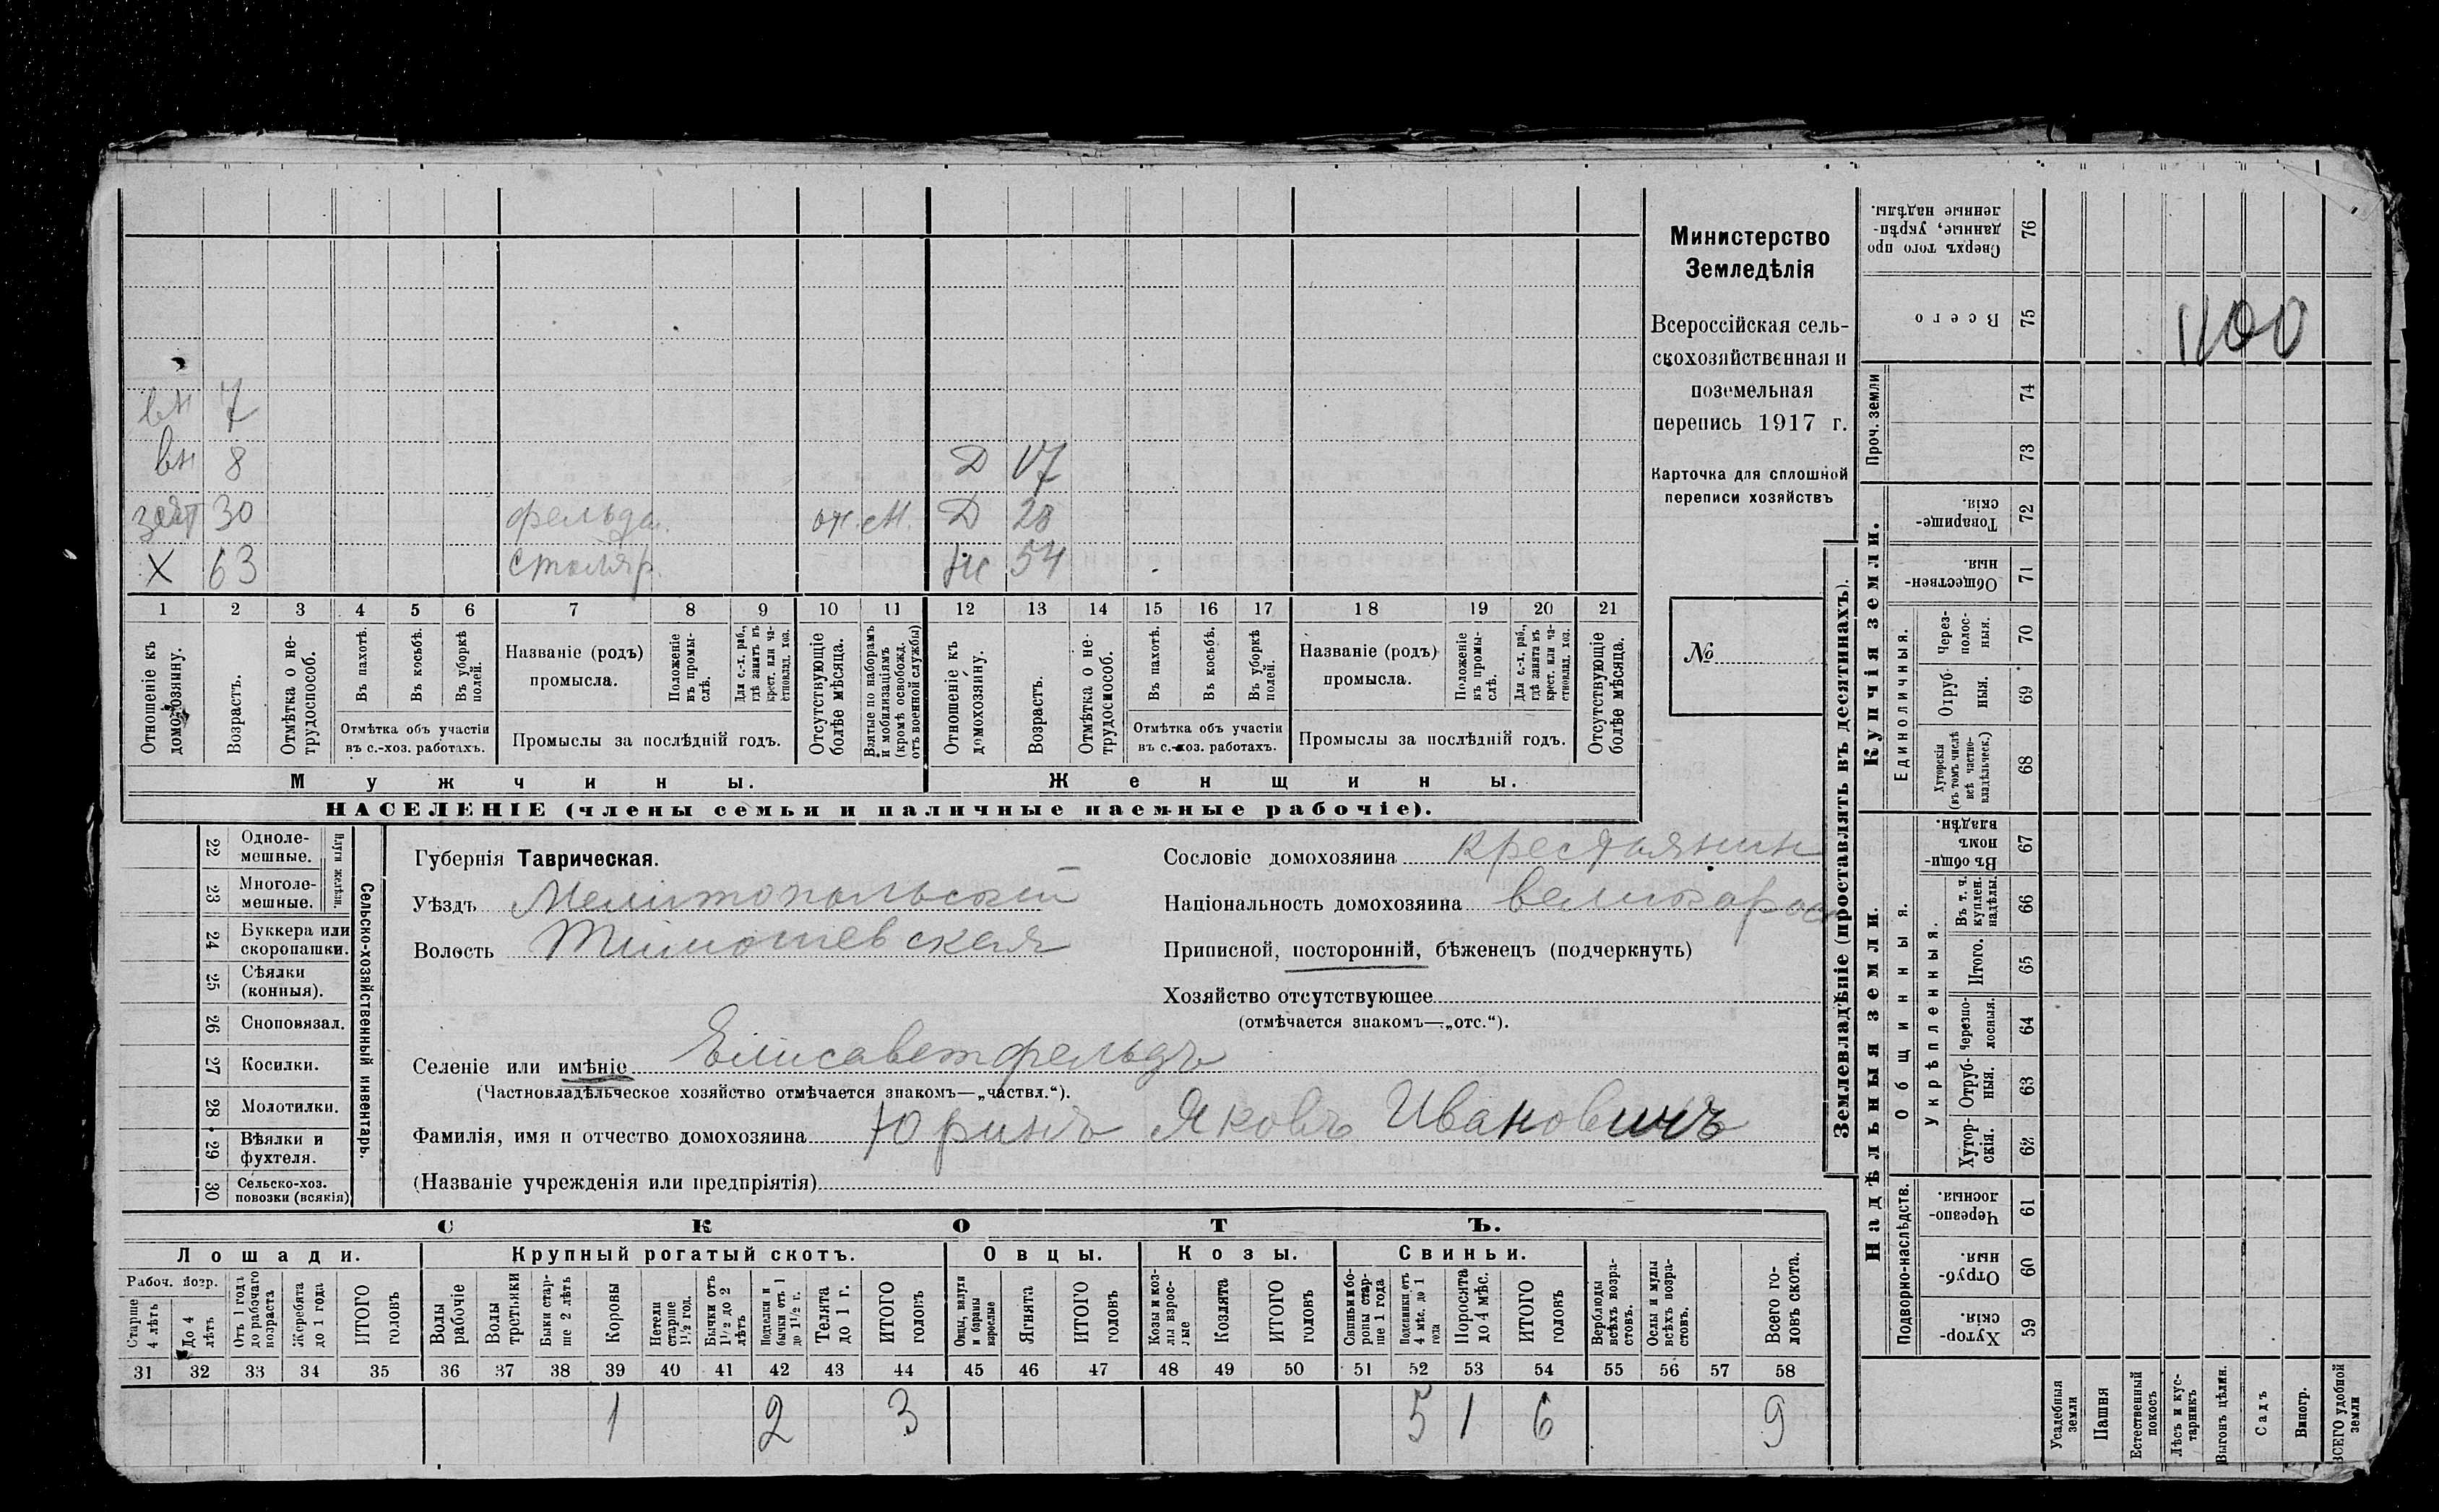 вн 7
вн 8 Д 17
зят 30 фельд. от. М. Д 28
Х 63 столяр. ж 54
1 2 3 4 5 6 7 8 9 10 11 12 13 14 15 16 17 18 19 20 21
Отношеніе къ домохозяину.
Возрастъ.
Отмѣтка о не-
трудоспособ.
Въ пахотѣ.
Въ косьбѣ.
Въ уборкѣ полей.
Отмѣтка объ участіи
въ с.-хоз. работахъ.
Названіе (родъ)
промысла.
Положеніе въ промы-
слѣ.
Для с.-х. раб., гдѣ занятъ въ крест. или ча-
стновлад. хоз.
Промыслы за послѣдній годъ.
Отсутствующіе болѣе мѣсяца.
Взятые по наборамъ и мобилизаціямъ (кромѣ освобожд. отъ военной службы)
Отношеніе къ домохозяину.
Возрастъ.
Отмѣтка о не-
трудоспособ.
Въ пахотѣ.
Въ косьбѣ.
Въ уборкѣ полей.
Отмѣтка объ участіи
въ с.-хоз. работахъ.
Названіе (родъ)
промысла.
Положеніе въ промы-
слѣ.
Для с.-х. раб., гдѣ занята въ крест. или ча-
стновлад. хоз.
Промыслы за послѣдній годъ.
Отсутствующіе болѣе мѣсяца.
Мужчины. Женщины.
НАСЕЛЕНІЕ (члены семьи и наличные наемные рабочіе).
Министерство
Земледѣлія
Всероссійская сель-
скохозяйственная и
поземельная
перепись 1917 г.
Карточка для сплошной
переписи хозяйствъ
№
22 Одноле-
мешные.
23 Многоле-
мешные.
Плуги желѣзн.
24 Буккера или
скоропашки.
25 Сѣялки
(конныя).
26 Сноповязал.
27 Косилки.
28 Молотилки.
29 Вѣялки и
фухтеля.
30 Сельско-хоз.
повозки (всякія)
Сельско-хозяйственный инвентарь.
Губернія Таврическая.
Уѣздъ Мелитопольскій
Волость Тимошевская
Сословіе домохозяина крестьянин
Національность домохозяина великорос
Приписной, посторонній, бѣженецъ (подчеркнуть)
Хозяйство отсутствующее
(отмѣчается знакомъ—„отс.“).
Селеніе или имѣніе Елисаветфельдъ
(Частновладѣльческое хозяйство отмѣчается знакомъ—„частвл.“).
Фамилія, имя и отчество домохозяина Юринъ Яковъ Ивановичъ
(Названіе учрежденія или предпріятія)
СКОТЪ.
Лошади. Крупный рогатый скотъ. Овцы. Козы. Свиньи.
Рабоч. возр.
Старше 4 лѣтъ
До 4 лѣтъ
Отъ 1 года до рабочаго возраста
Жеребята до 1 года
ИТОГО головъ
Волы рабочіе
Волы третьяки
Быки стар-
ше 2 лѣтъ
Коровы
Нетели старше 1½ год.
Бычки отъ 1½ до 2 лѣтъ
Подтелки и бычки отъ 1 до 1½ г.
Телята до 1 г.
ИТОГО головъ
Овцы, валухи и бараны взрослые
Ягнята
ИТОГО головъ
Козы и коз-
лы взрос-
лые
Козлята
ИТОГО головъ
Свиньи и бо-
ровы стар-
ше 1 года
Подсвинки отъ 4 мѣс. до 1 года
Поросята до 4 мѣс.
ИТОГО головъ
Верблюды всѣхъ возра-
стовъ.
Ослы и мулы всѣхъ возра-
стовъ.
Всего го-
ловъ скота.
31 32 33 34 35 36 37 38 39 40 41 42 43 44 45 46 47 48 49 50 51 52 53 54 55 56 57 58
1 2 3 5 1 6 9
Землевладѣніе (проставлять въ десятинахъ).
Сверхъ того про-
данные, укрѣп-
ленные надѣлы. 76
Всего 75
1100
Проч. земли 74
73
Купчія земли.
Товарище-
скія. 72
Обществен-
ныя. 71
Единоличныя.
Через-
полос-
ныя. 70
Отруб-
ныя. 69
Хуторскія (въ томъ числѣ всѣ частно-
владѣльческ.) 68
Надѣльныя земли.
Общинныя.
Въ общи-
номъ
владѣн. 67
Укрѣпленныя.
Въ т. ч. куплен. надѣлы. 66
Итого. 65
Черезпо-
лосныя. 64
Отруб-
ныя. 63
Хутор-
скія. 62
Подворно-наслѣдств.
Черезпо-
лосныя. 61
Отруб-
ныя. 60
Хутор-
скія. 59
Усадебныя земли
Пашня
Естественный покосъ
Лѣсъ и кус-
тарникъ
Выгонъ цѣлин.
Садъ
Виногр.
ВСЕГО удобной земли